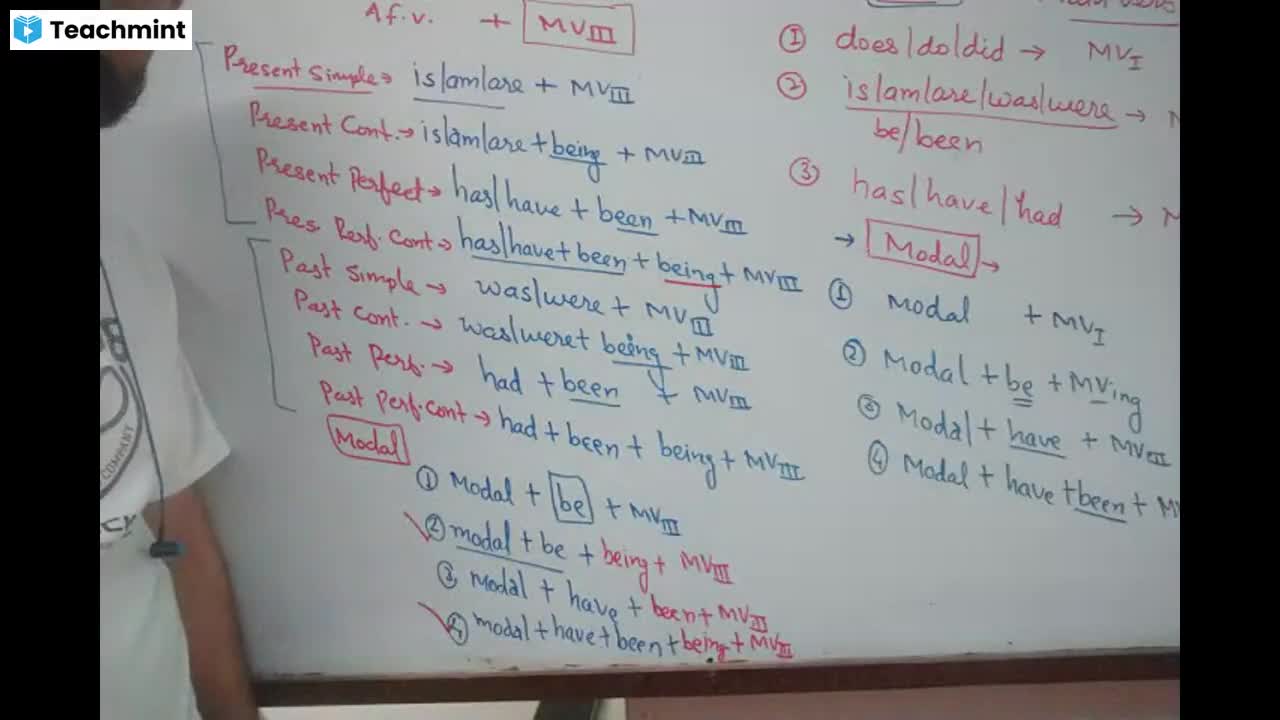 Teachmint
A f. v. + MVIII
Present Simple → is/am/are + MVIII
Present Cont. → is/am/are + being + MVIII
Present Perfect → has/have + been + MVIII
Pres. Perf. Cont → has/have + been + being + MVIII
Past Simple → was/were + MVIII
Past Cont. → was/were + being + MVIII
Past Perf. → had + been + MVIII
Past Perf. Cont → had + been + being + MVIII
Modal
① Modal + be + MVIII
② modal + be + being + MVIII
③ modal + have + been + MVIII
④ modal + have + been + being + MVIII
① does/do/did → MVI
② is/am/are/was/were →
be/been
③ has/have/had →
→ Modal →
① Modal + MVI
② Modal + be + MVing
③ Modal + have + MVIII
④ Modal + have + been +
COMPANY